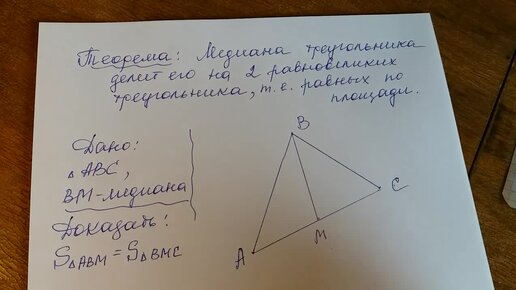 Теорема: Медиана треугольника
делит его на 2 равновеликих
треугольника, т.е. равных по
площади.
Дано:
△ABC,
BM-медиана
Доказать:
S△ABM = S△BMC
B
C
M
A